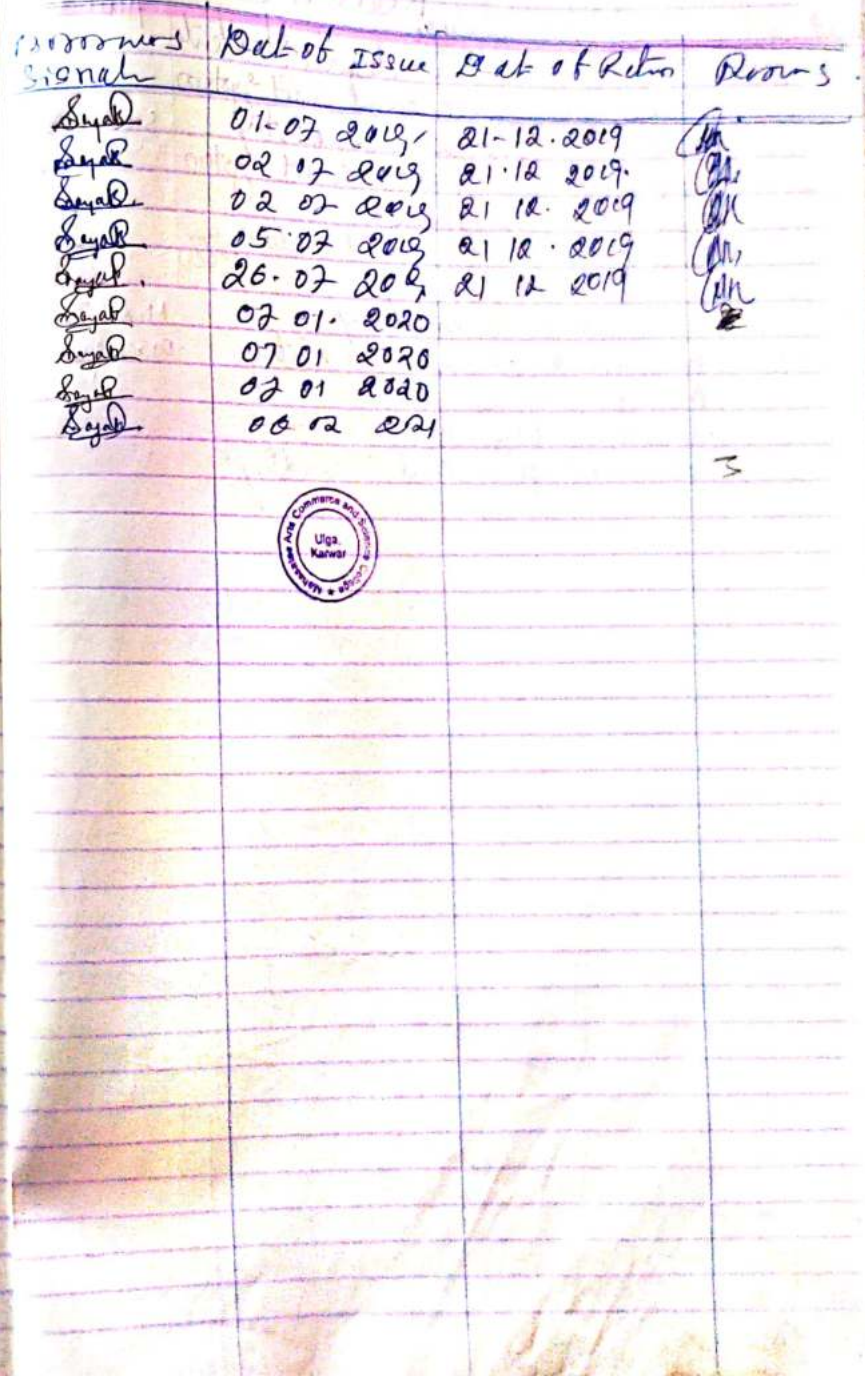 Signah Dat of Issue Dat of Retun
Sayak 01-07 2019, 21-12.2019
Sayak 02 07 2019 21.12 2019.
Sayak. 02 07 2019 21 12. 2019
Sayak 05.07 2019 21 12. 2019
Sayak. 26.07 2019 21 12 2019
Sayak 07 01. 2020
Sayak 07 01 2020
Sayak 07 01 2020
Sayak. 02 2021
Mahasatee Arts Commerce and Science College ★
Ulga,
Karwar